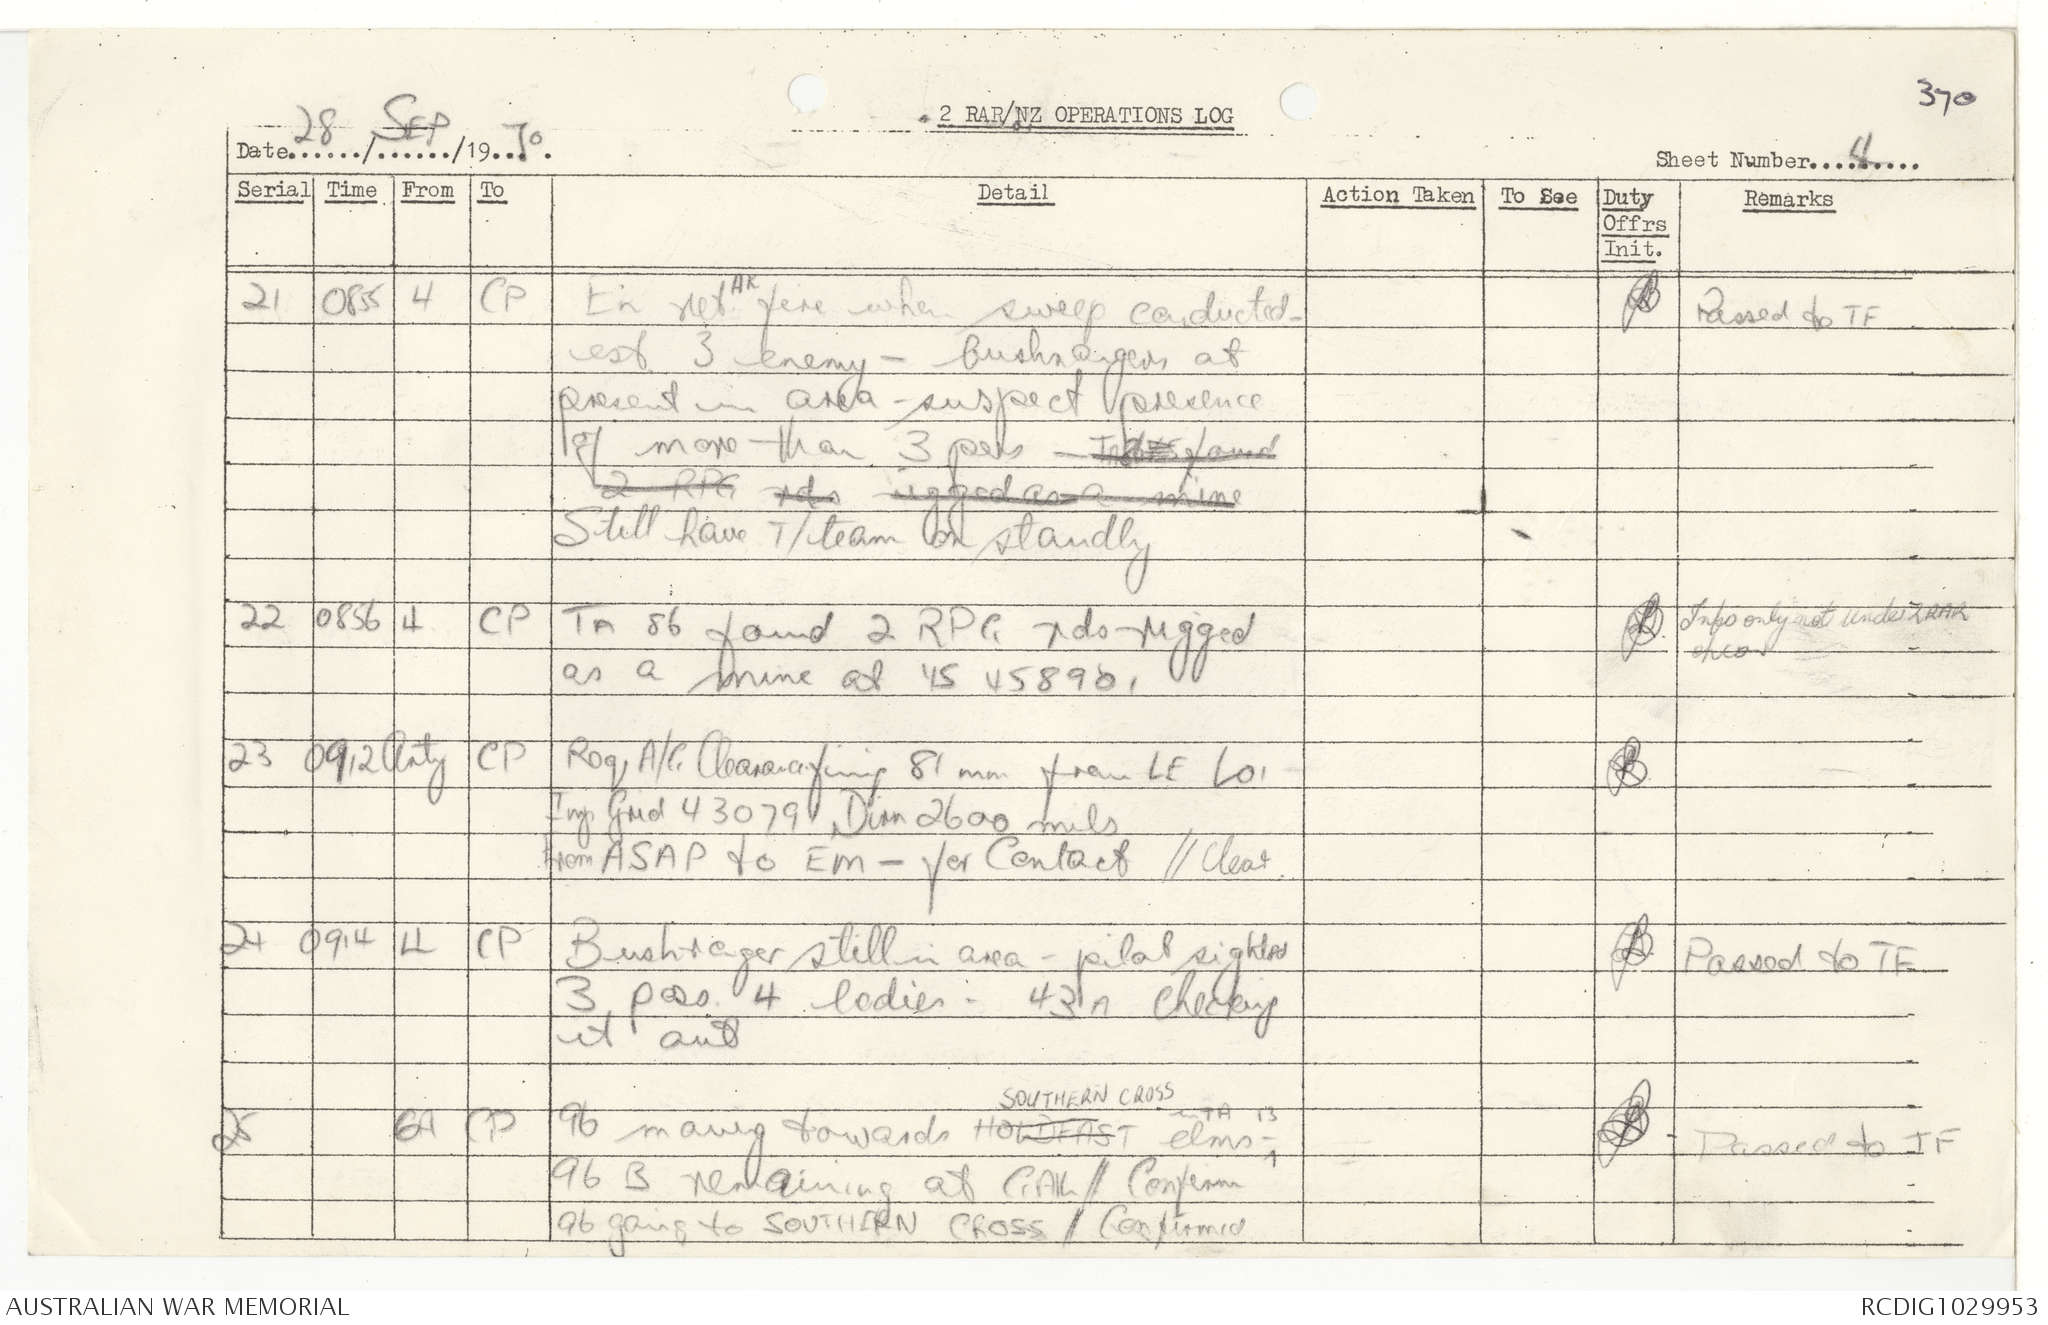 370
2 RAR/NZ OPERATIONS LOG
Date 28/SEP/1970.
Sheet Number 4
Serial Time From To Detail Action Taken To See Duty Offrs Init. Remarks
21 0855 4 CP En ret AK fire when sweep conducted - Passed to TF
est 3 enemy - bushrangers at
present in area - suspect presence
of more than 3 pers - found
2 RPG rds rigged as a mine
Still have T/team on standby
22 0856 4 CP TA 86 found 2 RPG rds-rigged Info only not under 2RAR
as a mine at YS 458981
23 0912 Arty CP Req A/C Clearance firing 81 mm from LE LOI
Imp Grid 43079 Dirn 2600 mils
from ASAP to EM - for Contact // Clear.
24 0914 4 CP Bushranger still in area - pilot sighted Passed to TF
3 poss. 4 bodies - 43A Checking
it out
SOUTHERN CROSS
25 CP 96 moving towards HOLDFAST elms - Passed to TF
in TA 13
96 B remaining at GAK // Confirm
96 going to SOUTHERN CROSS // Confirmed
AUSTRALIAN WAR MEMORIAL
RCDIG1029953